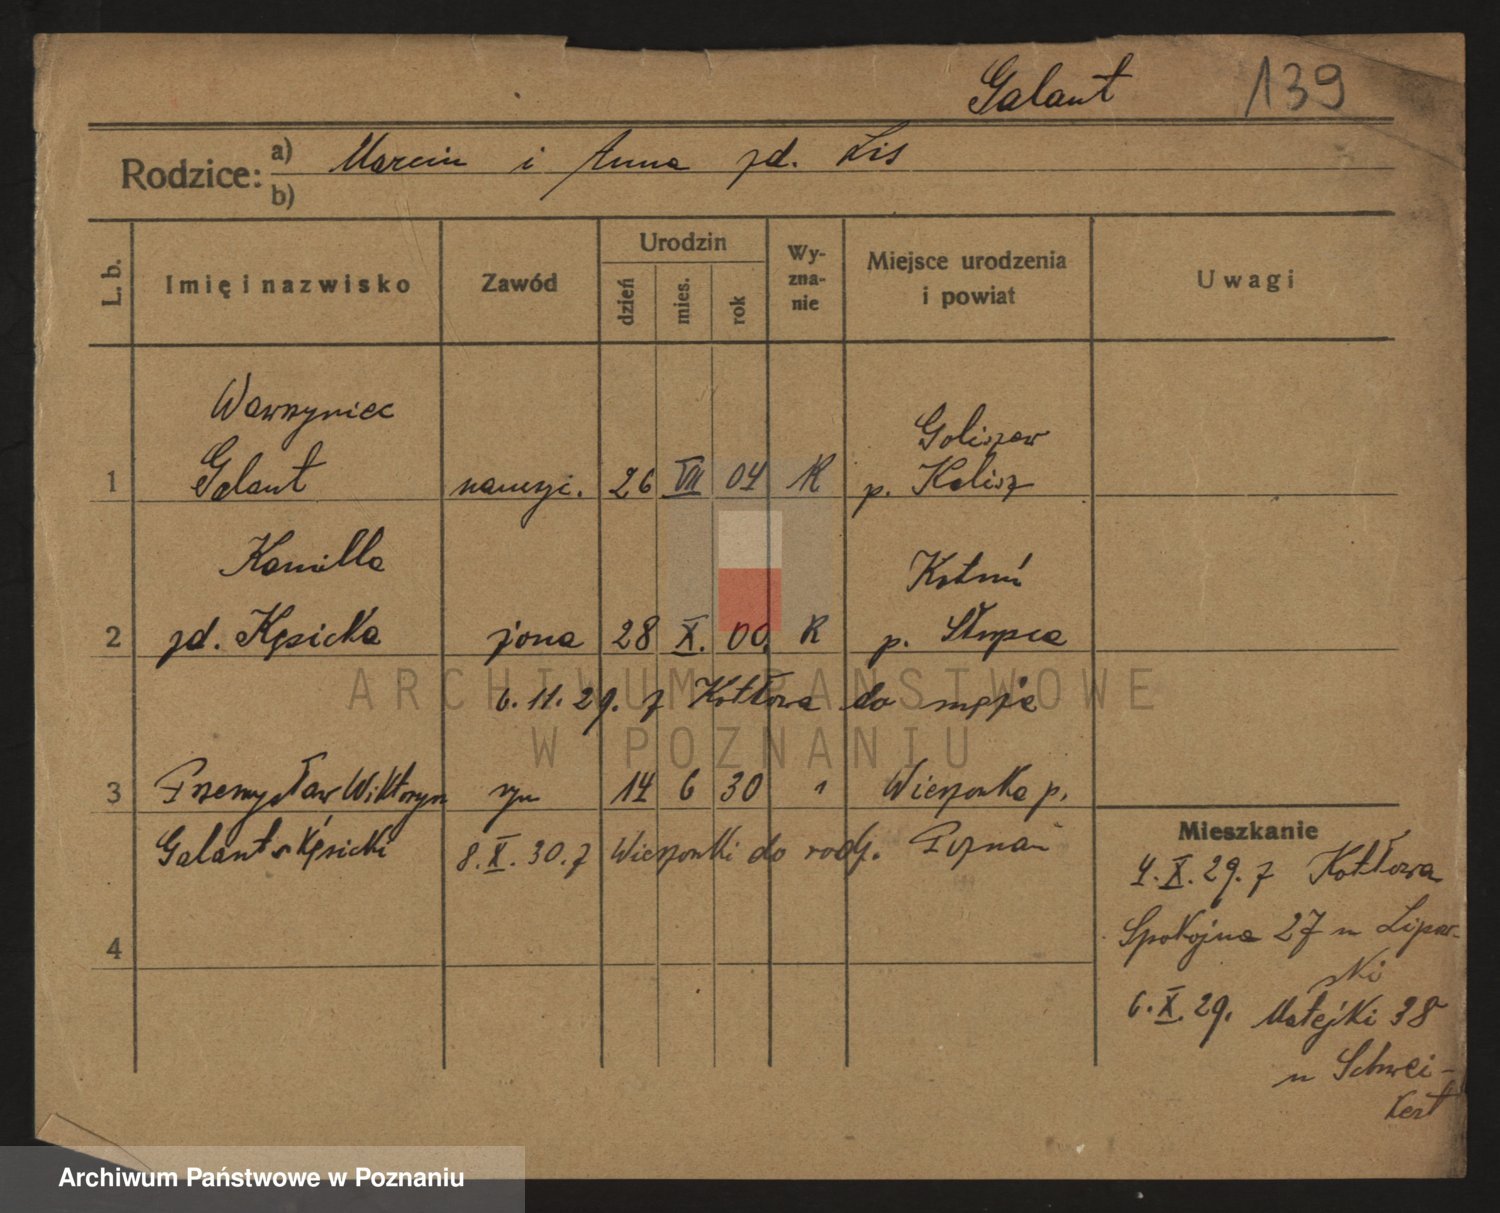 Galant 139
Rodzice: a) Marcin i Anna zd. Lis
b)
L. b. Imię i nazwisko Zawód Urodzin dzień mies. rok Wy-zna-nie Miejsce urodzenia i powiat Uwagi
Wawrzyniec
Goliszew
1 Galant nauczyc. 26 VII 04 R p. Kalisz
Kamilla
2 zd. Kęsicka żona 28 X. 00. R p. Słupca
6.11.29. z Kotłowa do męża
3 Przemysław Wiktoryn syn 14 6 30 " Wierzonka p.
Galant v. Kęsicki 8.X.30. z Wierzonki do rodz. Poznań
4
Mieszkanie
4.X.29. z Kotłowa
Spokojna 27 u Lipow-
ski
6.X.29. Matejki 38
u Schwei-
kert
ARCHIWUM PAŃSTWOWE
W POZNANIU
Archiwum Państwowe w Poznaniu